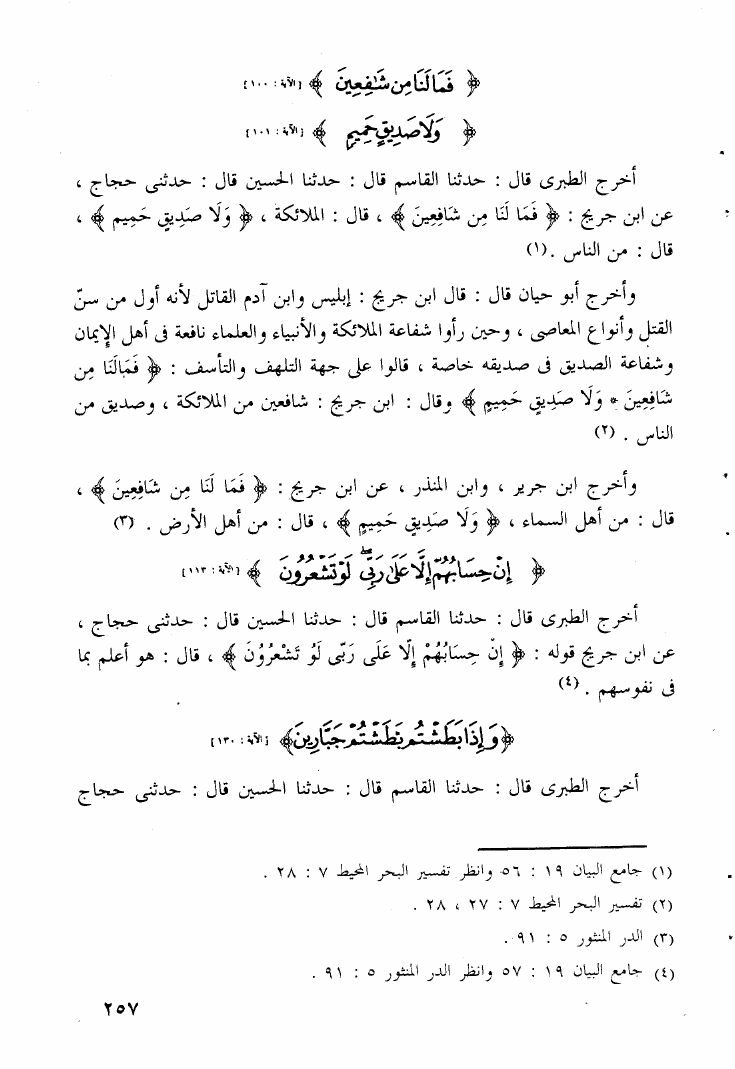 ﴿ فَمَا لَنَا مِن شَٰفِعِينَ ﴾ [الآية : ١٠٠]
﴿ وَلَا صَدِيقٍ حَمِيمٍ ﴾ [الآية : ١٠١]
أخرج الطبرى قال : حدثنا القاسم قال : حدثنا الحسين قال : حدثنى حجاج ،
عن ابن جريج : ﴿ فَمَا لَنَا مِن شَافِعِينَ ﴾ ، قال : الملائكة ، ﴿ وَلَا صَدِيقٍ حَمِيم ﴾ ،
قال : من الناس . (١)
وأخرج أبو حيان قال : قال ابن جريج : إبليس وابن آدم القاتل لأنه أول من سنّ
القتل وأنواع المعاصى ، وحين رأوا شفاعة الملائكة والأنبياء والعلماء نافعة فى أهل الإيمان
وشفاعة الصديق فى صديقه خاصة ، قالوا على جهة التلهف والتأسف : ﴿ فَمَالَنَا مِن
شَافِعِينَ * وَلَا صَدِيقٍ حَمِيمٍ ﴾ وقال : ابن جريج : شافعين من الملائكة ، وصديق من
الناس . (٢)
وأخرج ابن جرير ، وابن المنذر ، عن ابن جريج : ﴿ فَمَا لَنَا مِن شَافِعِينَ ﴾ ،
قال : من أهل السماء ، ﴿ وَلَا صَدِيقٍ حَمِيمٍ ﴾ ، قال : من أهل الأرض . (٣)
﴿ إِنْ حِسَابُهُمْ إِلَّا عَلَىٰ رَبِّى لَوْ تَشْعُرُونَ ﴾ [الآية : ١١٣]
أخرج الطبرى قال : حدثنا القاسم قال : حدثنا الحسين قال : حدثنى حجاج ،
عن ابن جريج قوله : ﴿ إِنْ حِسَابُهُمْ إِلَّا عَلَى رَبّى لَوْ تَشْعُرُوْنَ ﴾ ، قال : هو أعلم بما
فى نفوسهم . (٤)
﴿ وَإِذَا بَطَشْتُم بَطَشْتُمْ جَبَّارِينَ ﴾ [الآية : ١٣٠]
أخرج الطبرى قال : حدثنا القاسم قال : حدثنا الحسين قال : حدثنى حجاج
(١) جامع البيان ١٩ : ٥٦ وانظر تفسير البحر المحيط ٧ : ٢٨ .
(٢) تفسير البحر المحيط ٧ : ٢٧ ، ٢٨ .
(٣) الدر المنثور ٥ : ٩١ .
(٤) جامع البيان ١٩ : ٥٧ وانظر الدر المنثور ٥ : ٩١ .
٢٥٧